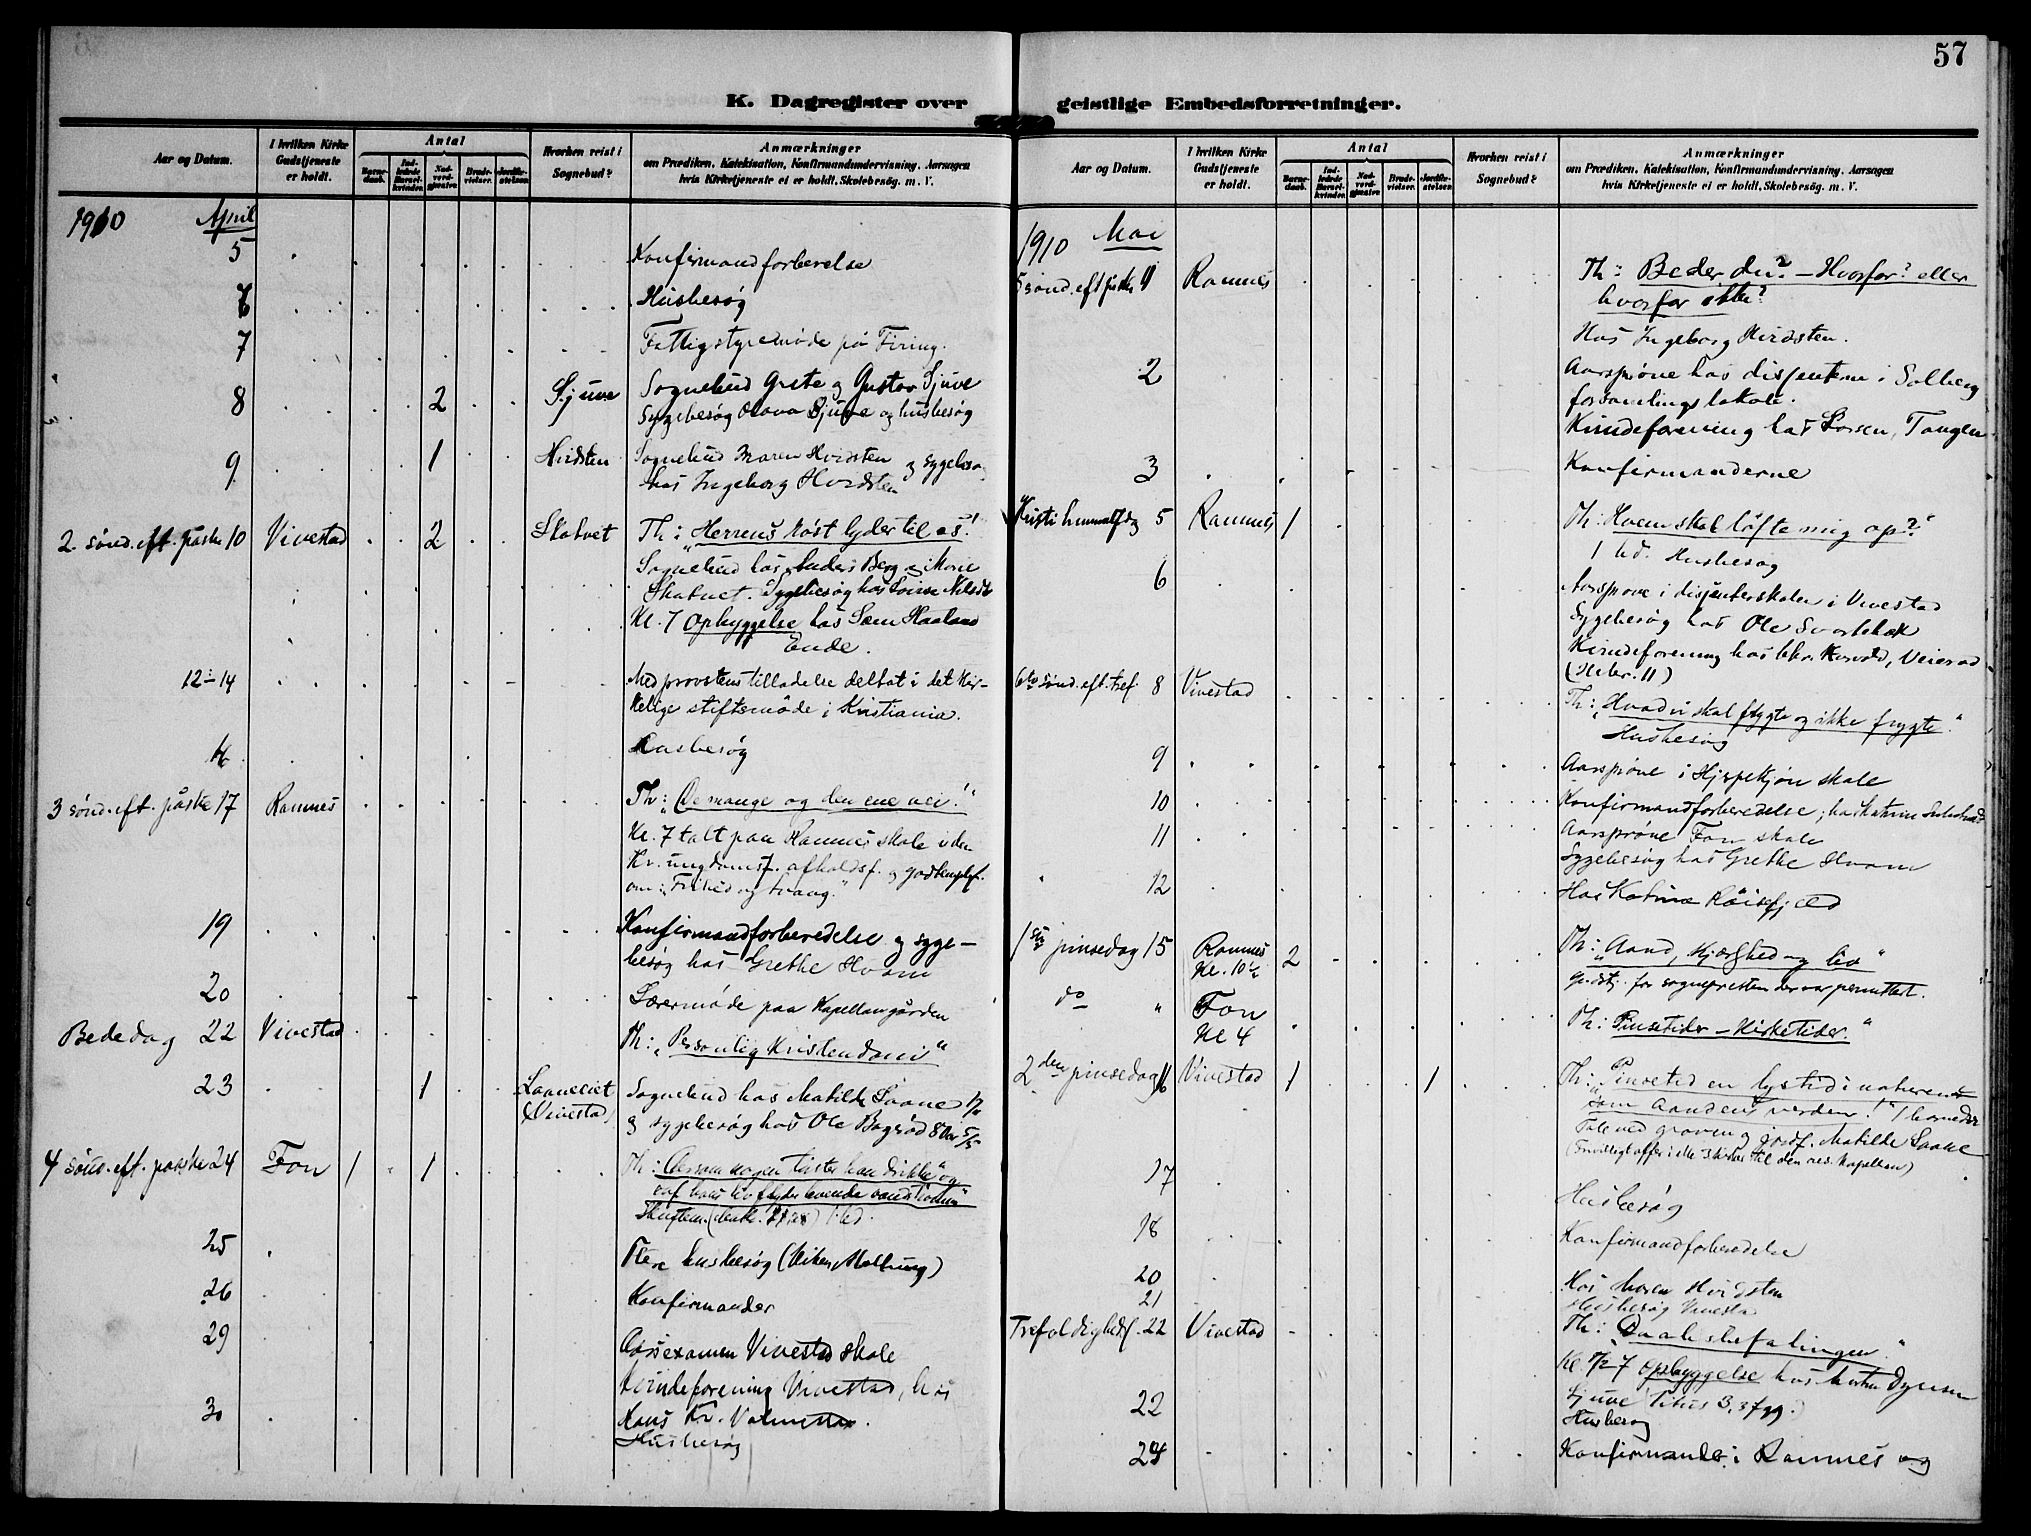 57
K. Dagregister over geistlige Embedsforretninger.
Aar og Datum.
I hvilken Kirke Gudstjeneste er holdt.
Antal
Barnedaab.
Indledede Barselkvinder.
Nadverdgjester.
Brudevielser.
Jordfæstelser.
Hvorhen reist i Sognebud?
Anmærkninger
om Prædiken, Katekisation, Konfirmandundervisning, Aarsagen
hvis Kirketjeneste ei er holdt, Skolebesøg. m. V.
1910 April
5 Konfirmandforberelse
6 Husbesøg
7 Fattigstyremøde på Firing.
8 2 Sjuve Sognebud Grete og Gustav Sjuve
Sygebesøg Olava Sjuve og husbesøg
9 1 Hvidsten Sognebud Maren Hvidsten og sygebesøg
hos Ingeborg Hvidsten
2 sønd. eft. påske 10 Vivestad 2 Skatvet Th: "Herrens røst lyder til os!"
Sognebud hos Anders Berg og Marie
Skatvet. Sygebesøg hos
Kl. 7 Opbyggelse hos Sem Haaland
Ende.
12-14 Med provstens tilladelse deltat i det kir-
kelige stiftsmøde i Kristiania.
Husbesøg
3 sønd. eft. påske 17 Ramnes Th: "De mange og den ene vei!"
Kl. 7 talt paa Ramnes skole i den
Kr. ungdomsf. afholdsf. og godtemplf.
om: "Frihed og tvang."
19 Konfirmandforberedelse og syge-
besøg hos Grethe Hvam
20 Lærermøde paa Kapellangården
Bededag 22 Vivestad Th: "Personlig Kristendom"
23 1 Laaneeiet (Vivestad) Sognebud hos Matilde Laane
og sygebesøg hos Ole Bagsrød
4 sønd. eft. paaske 24 Fon 1 1 Th: "Dersom nogen tørster han drikke" og
"af hans liv flyde levende vandstrømme"
25 Flere husbesøg
26 Konfirmander
29 Aarsexamen Vivestad skole
Kvindeforening Vivestad, hos
30 Hans Kr. Valmestad.
Husbesøg
K. Dagregister over geistlige Embedsforretninger.
Aar og Datum.
I hvilken Kirke Gudstjeneste er holdt.
Antal
Barnedaab.
Indledede Barselkvinder.
Nadverdgjester.
Brudevielser.
Jordfæstelser.
Hvorhen reist i Sognebud?
Anmærkninger
om Prædiken, Katekisation, Konfirmandundervisning, Aarsagen
hvis Kirketjeneste ei er holdt, Skolebesøg. m. V.
1910 Mai
5 sønd. eft påske 1 Ramnes Th: Beder du? - Hvorfor? eller
hvorfor ikke?
Hos Ingeborg Hvidsten.
2 Aarsprøve hos disjenterne i Solberg
forsamlingslokale.
Kvindeforening hos Larsen, Tangen
3 Konfirmanderne
Kristi himmelfdg 5 Ramnes 1 Th: "Hvem skal løfte mig op?"
Husbesøg
6 Aarsprøve i disjenterskolen i Vivestad
Sygebesøg hos Ole Svartebæk
Kvindeforening hos
(Hebr. 11)
8 Vivestad Th: "Hvad vi skal frygte og ikke frygte"
Husbesøg
9 Aarsprøve i Hjrpekjøn skole
10 Konfirmandforberedelse; hos Katrine
11 Aarsprøve Fon skole
Sygebesøg hos Grethe Hvam
12 Hos Katrine Røisefjæld
1ste pinsedag 15 Ramnes Kl. 10½ 2 Th: "Aand, Kjærlighed og liv"
Gudstj. for sognepresten der var permittert.
do " Fon Kl 4 Th: "Pinsetider - Kirketider."
2den pinsedag 16 Vivestad 1 1 Th: "Pinsetid en lystid i naturens
som Aandens verden!"
Tale ved graven og jordf. Matilde Laane
17 Husbesøg
18 Konfirmandforberedelse
20 Hos Maren Hvidsten
21 Husbesøg Vivestad
Trefoldighedsf. 22 Vivestad Th: "Daabsbefalingen."
Kl. ½ 7 opbyggelse hos
Sjuve Titus 3,
22 Husbesøg
24 Konfirmander i Ramnes og